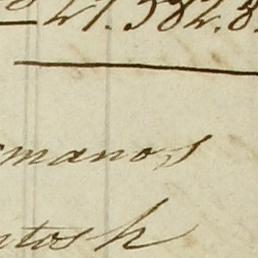 21.582.8
manos
ntosh